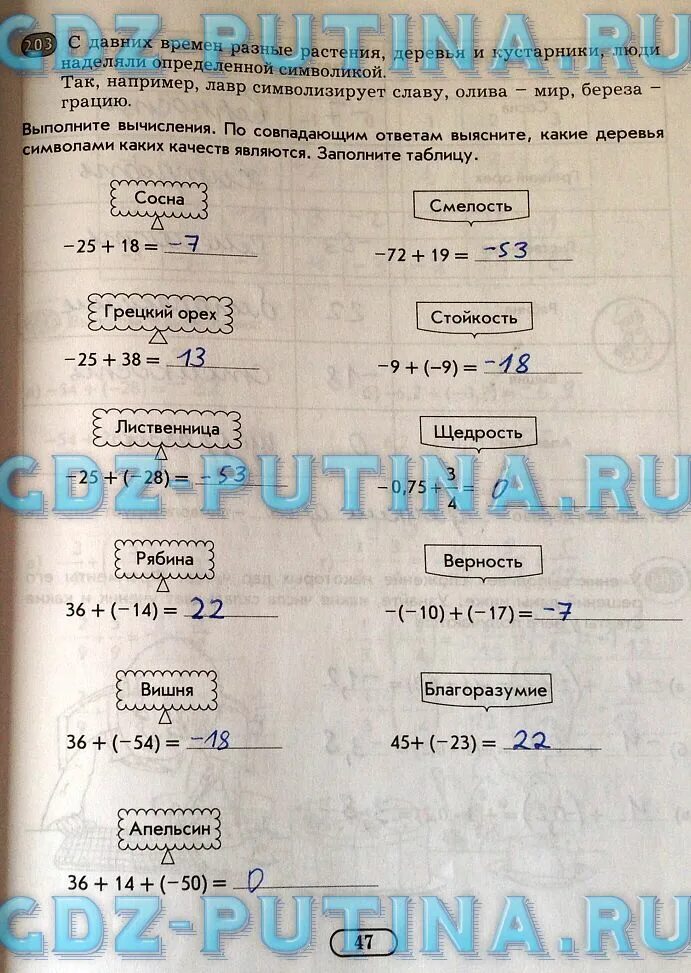 GDZ-PUTINA.RU
203 С давних времен разные растения, деревья и кустарники, люди
наделяли определенной символикой.
Так, например, лавр символизирует славу, олива – мир, береза –
грацию.
Выполните вычисления. По совпадающим ответам выясните, какие деревья
символами каких качеств являются. Заполните таблицу.
Сосна
–25 + 18 = –7
Смелость
–72 + 19 = –53
Грецкий орех
–25 + 38 = 13
Стойкость
–9 + (–9) = –18
Лиственница
–25 + (–28) = –53
Щедрость
–0,75 + 3/4 = 0
GDZ-PUTINA.RU
Рябина
36 + (–14) = 22
Верность
–(–10) + (–17) = –7
Вишня
36 + (–54) = –18
Благоразумие
45+ (–23) = 22
Апельсин
36 + 14 + (–50) = 0
GDZ-PUTINA.RU
47